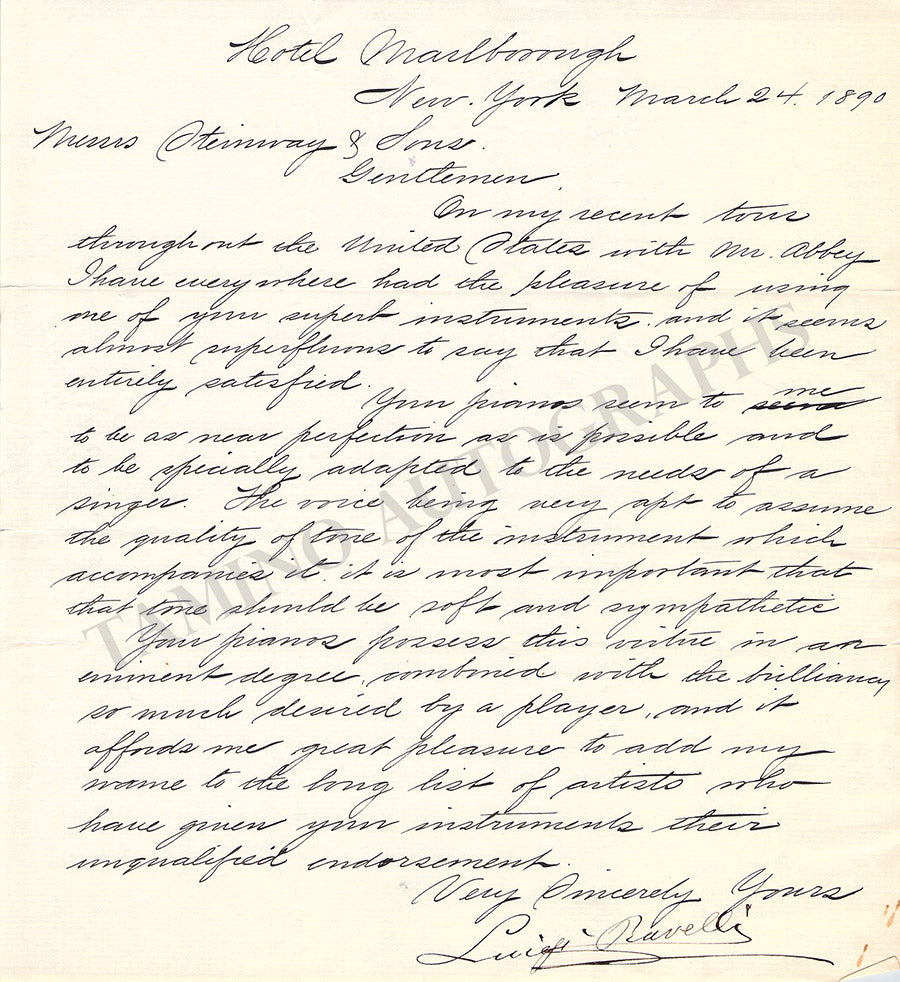 Hotel Marlborough
New-York March 24. 1890
Messrs Steinway & Sons.
Gentlemen
On my recent tour
throughout the United States with Mr. Abbey
I have everywhere had the pleasure of using
one of your superb instruments, and it seems
almost superfluous to say that I have been
entirely satisfied.
Your pianos seem to me
to be as near perfection as is possible and
to be specially adapted to the needs of a
singer. The voice being very apt to assume
the quality of tone of the instrument which
accompanies it it is most important that
that tone should be soft and sympathetic
Your pianos possess this virtue in an
eminent degree, combined with the brilliancy
so much desired by a player, and it
affords me great pleasure to add my
name to the long list of artists who
have given your instruments their
unqualified endorsement.
Very Sincerely Yours
Luigi Ravelli
TAMINO AUTOGRAPHS